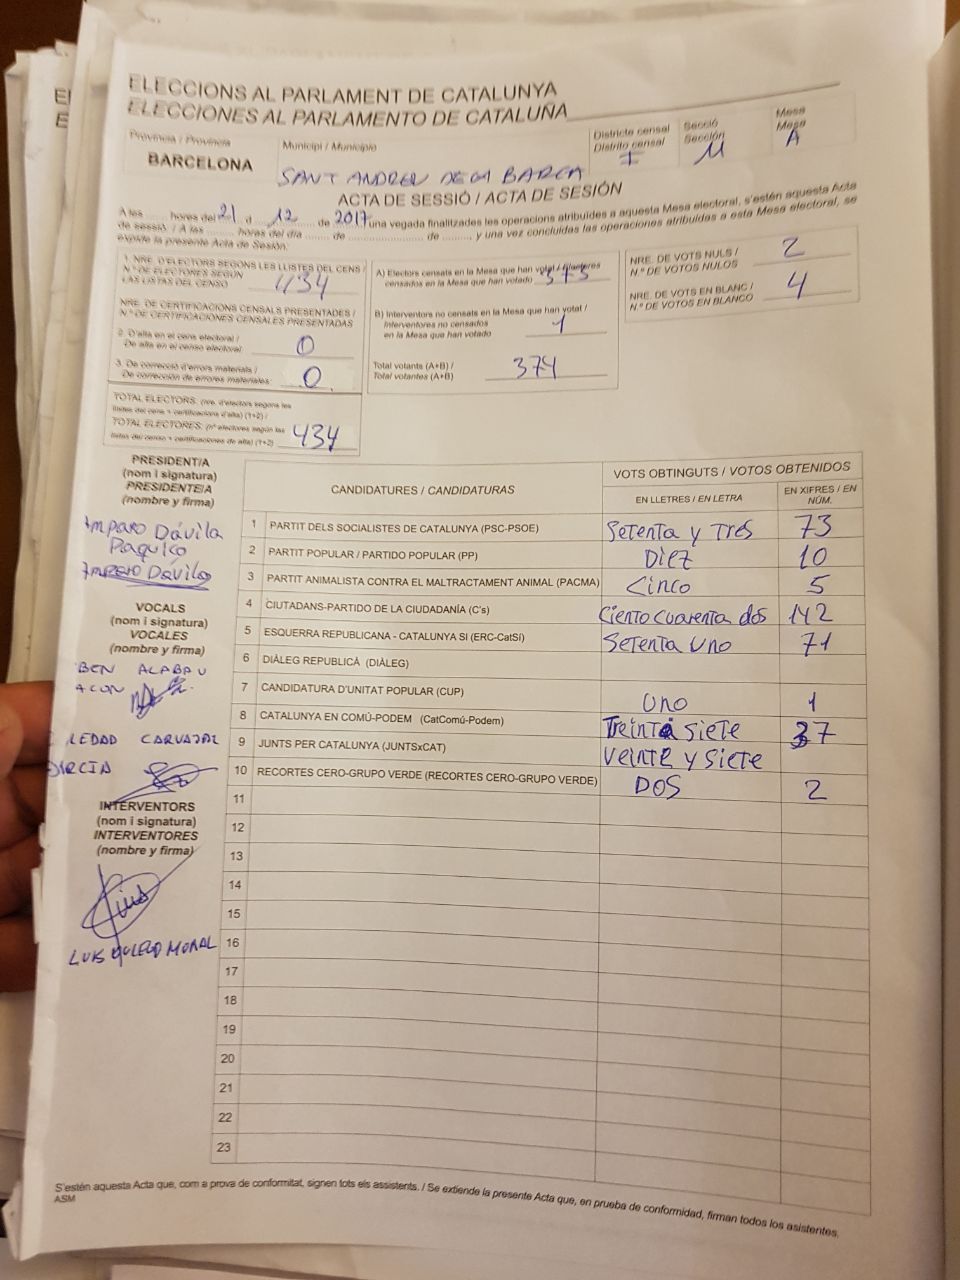 ELECCIONS AL PARLAMENT DE CATALUNYA
ELECCIONES AL PARLAMENTO DE CATALUÑA
Província / Provincia
BARCELONA
Municipi / Municipio
SANT ANDREU DE LA BARCA
Districte censal
Distrito censal
I
Secció
Sección
11
Mesa
Mesa
A
ACTA DE SESSIÓ / ACTA DE SESIÓN
A les ........ hores del 21 d 12 de 2017 una vegada finalitzades les operacions atribuïdes a aquesta Mesa electoral, s'estén aquesta Acta
de sessió / A las ........ horas del día ........ de ........ de ........, y una vez concluidas las operaciones atribuidas a esta Mesa electoral, se
expide la presente Acta de Sesión:
1. NRE. D'ELECTORS SEGONS LES LLISTES DEL CENS /
N.º DE ELECTORES SEGÚN
LAS LISTAS DEL CENSO
434
NRE. DE CERTIFICACIONS CENSALS PRESENTADES /
N.º DE CERTIFICACIONES CENSALES PRESENTADAS
2. D'alta en el cens electoral /
De alta en el censo electoral:
0
3. De correcció d'errors materials /
De corrección de errores materiales:
0
TOTAL ELECTORS: (nre. d'electors segons les
llistes del cens + certificacions d'alta) (1+2) /
TOTAL ELECTORES: (nº electores según las
listas del censo + certificaciones de alta) (1+2)
434
A) Electors censats en la Mesa que han votat / Electores
censados en la Mesa que han votado
373
B) Interventors no censats en la Mesa que han votat /
Interventores no censados
en la Mesa que han votado
1
Total votants (A+B) /
Total votantes (A+B)
374
NRE. DE VOTS NULS /
N.º DE VOTOS NULOS
2
NRE. DE VOTS EN BLANC /
N.º DE VOTOS EN BLANCO
4
PRESIDENT/A
(nom i signatura)
PRESIDENTE/A
(nombre y firma)
Amparo Dávila
Paquico
Amparo Dávila
VOCALS
(nom i signatura)
VOCALES
(nombre y firma)
BEN ALABAU
ACON
LEDAD CARVAJAL
INTERVENTORS
(nom i signatura)
INTERVENTORES
(nombre y firma)
Luis
LUIS MORAL
CANDIDATURES / CANDIDATURAS
VOTS OBTINGUTS / VOTOS OBTENIDOS
EN LLETRES / EN LETRA
EN XIFRES / EN
NÚM.
1 PARTIT DELS SOCIALISTES DE CATALUNYA (PSC-PSOE) Setenta y Tres 73
2 PARTIT POPULAR / PARTIDO POPULAR (PP) Diez 10
3 PARTIT ANIMALISTA CONTRA EL MALTRACTAMENT ANIMAL (PACMA) Cinco 5
4 CIUTADANS-PARTIDO DE LA CIUDADANÍA (C's) Ciento cuarenta dos 142
5 ESQUERRA REPUBLICANA - CATALUNYA SÍ (ERC-CatSí) Setenta uno 71
6 DIÀLEG REPUBLICÀ (DIÀLEG)
7 CANDIDATURA D'UNITAT POPULAR (CUP) Uno 1
8 CATALUNYA EN COMÚ-PODEM (CatComú-Podem) Treinta siete 37
9 JUNTS PER CATALUNYA (JUNTSxCAT) Veinte y siete
10 RECORTES CERO-GRUPO VERDE (RECORTES CERO-GRUPO VERDE) DOS 2
11
12
13
14
15
16
17
18
19
20
21
22
23
S'estén aquesta Acta que, com a prova de conformitat, signen tots els assistents. / Se extiende la presente Acta que, en prueba de conformidad, firman todos los asistentes.
ASM